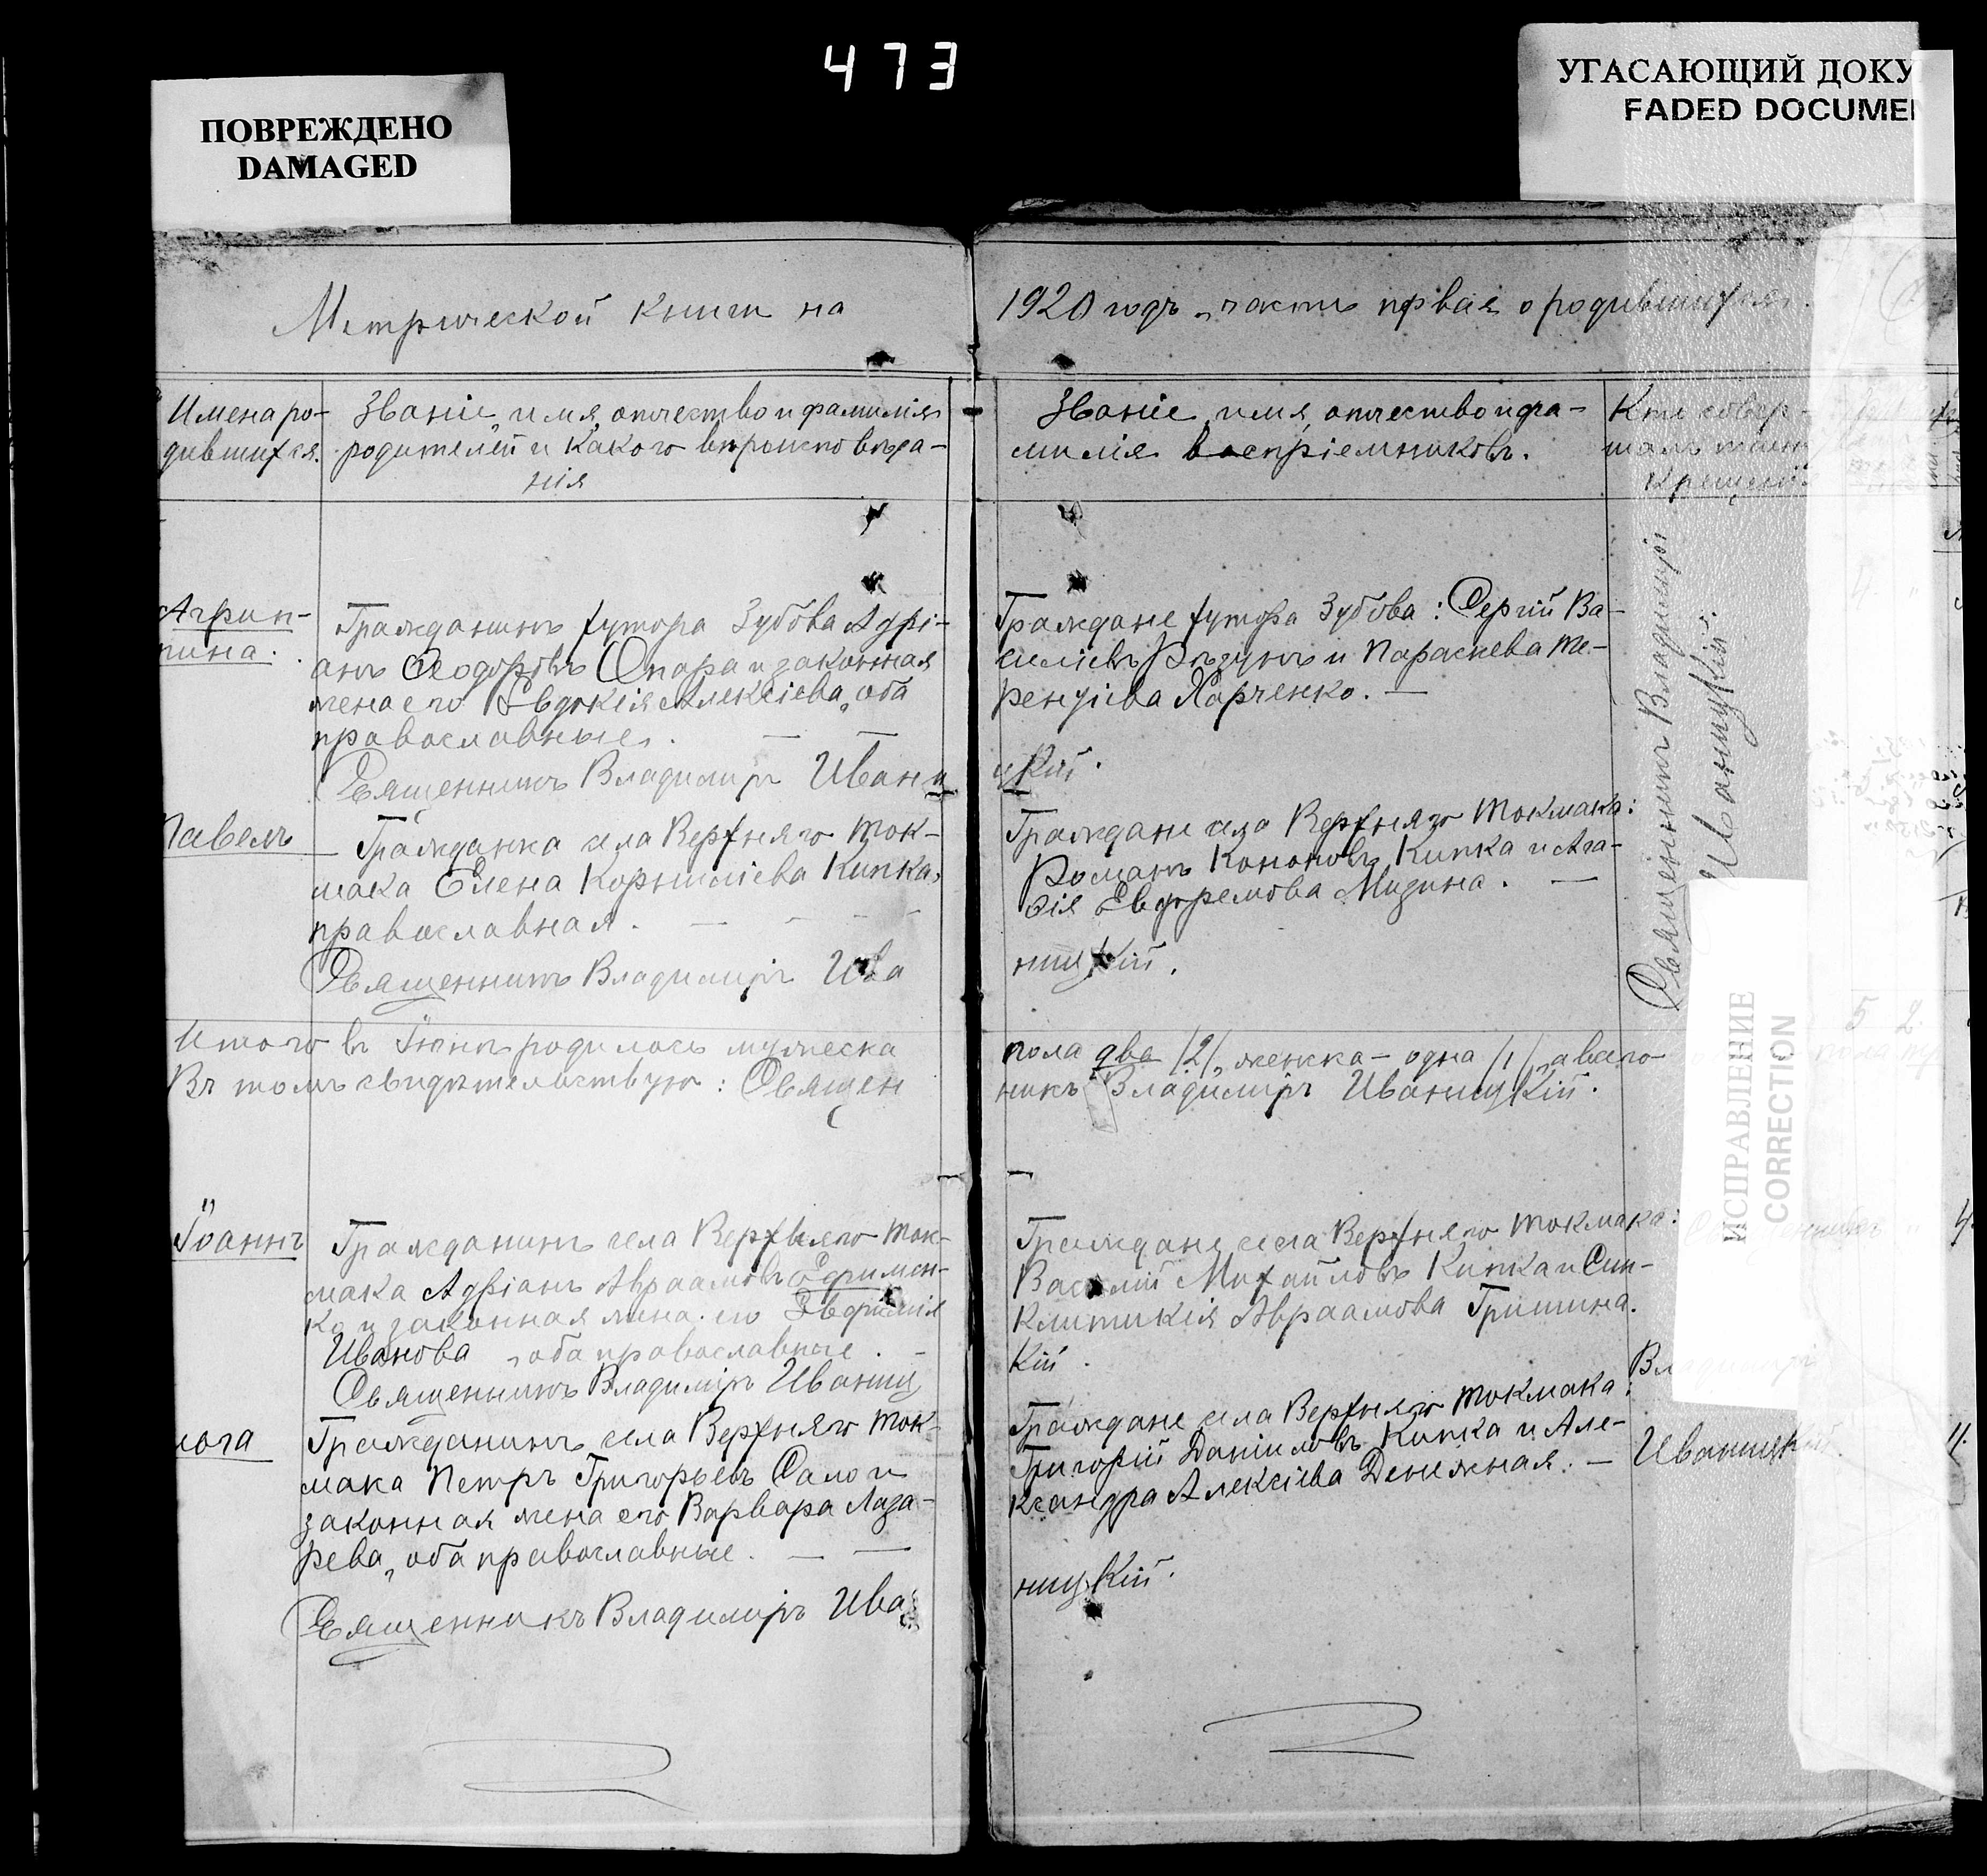 473
ПОВРЕЖДЕНО
DAMAGED
УГАСАЮЩИЙ ДОКУ
FADED DOCUME
Метрической книги на
1920 годъ, часть первая о родившихся.
Имена ро-
дившихся.
Званіе, имя, отчество и фамилія
родителей и какого вѣроисповѣда-
нія
Званіе, имя, отчество и фа-
милія воспріемниковъ.
Кто совер-
шалъ таин
крещенія
Агрип-
пина.
Гражданинъ хутора Зубова Адрі-
анъ Ѳеодоровъ Опара и законная
жена его Евдокія Алексіева, оба
православные.
Священникъ Владиміръ Иваниц
Граждане хутора Зубова: Сергій Ва-
силіевъ Рѣзунъ и Параскева Те-
рентіева Харченко.
цкій.
Священникъ Владиміръ
Иваницкій.
Павелъ
Гражданка села Верхняго Ток-
мака Елена Корниліева Кипка,
православная.
Священникъ Владиміръ Ива
Граждане села Верхняго Токмака:
Романъ Кононовъ Кипка и Ага-
ѳія Евфремова Мизина.
ницкій.
Итого въ Іюнѣ родилось мужеска
Въ томъ свидѣтельствую: Священ
пола два /2/, женска - одна /1/, а всего
никъ Владиміръ Иваницкій.
5 2
Іоаннъ
Гражданинъ села Верхняго Ток-
мака Адріанъ Авраамовъ Ефимен-
ко и законная жена его Евфимія
Иванова, оба православные.
Священникъ Владиміръ Иваниц
Граждане села Верхняго Токмака:
Василій Михайловъ Кипка и Син-
клитикія Авраамова Гришина.
кій.
ИСПРАВЛЕНИЕ
CORRECTION
Вл
Иваницкій.
лога
Гражданинъ села Верхняго Ток-
мака Петръ Григорьевъ Сало и
законная жена его Варвара Лаза-
рева, оба православные.
Священникъ Владиміръ Ива
Граждане села Верхняго Токмака:
Григорій Даніиловъ Кипка и Але-
ксандра Алексіева Денежная.
ницкій.